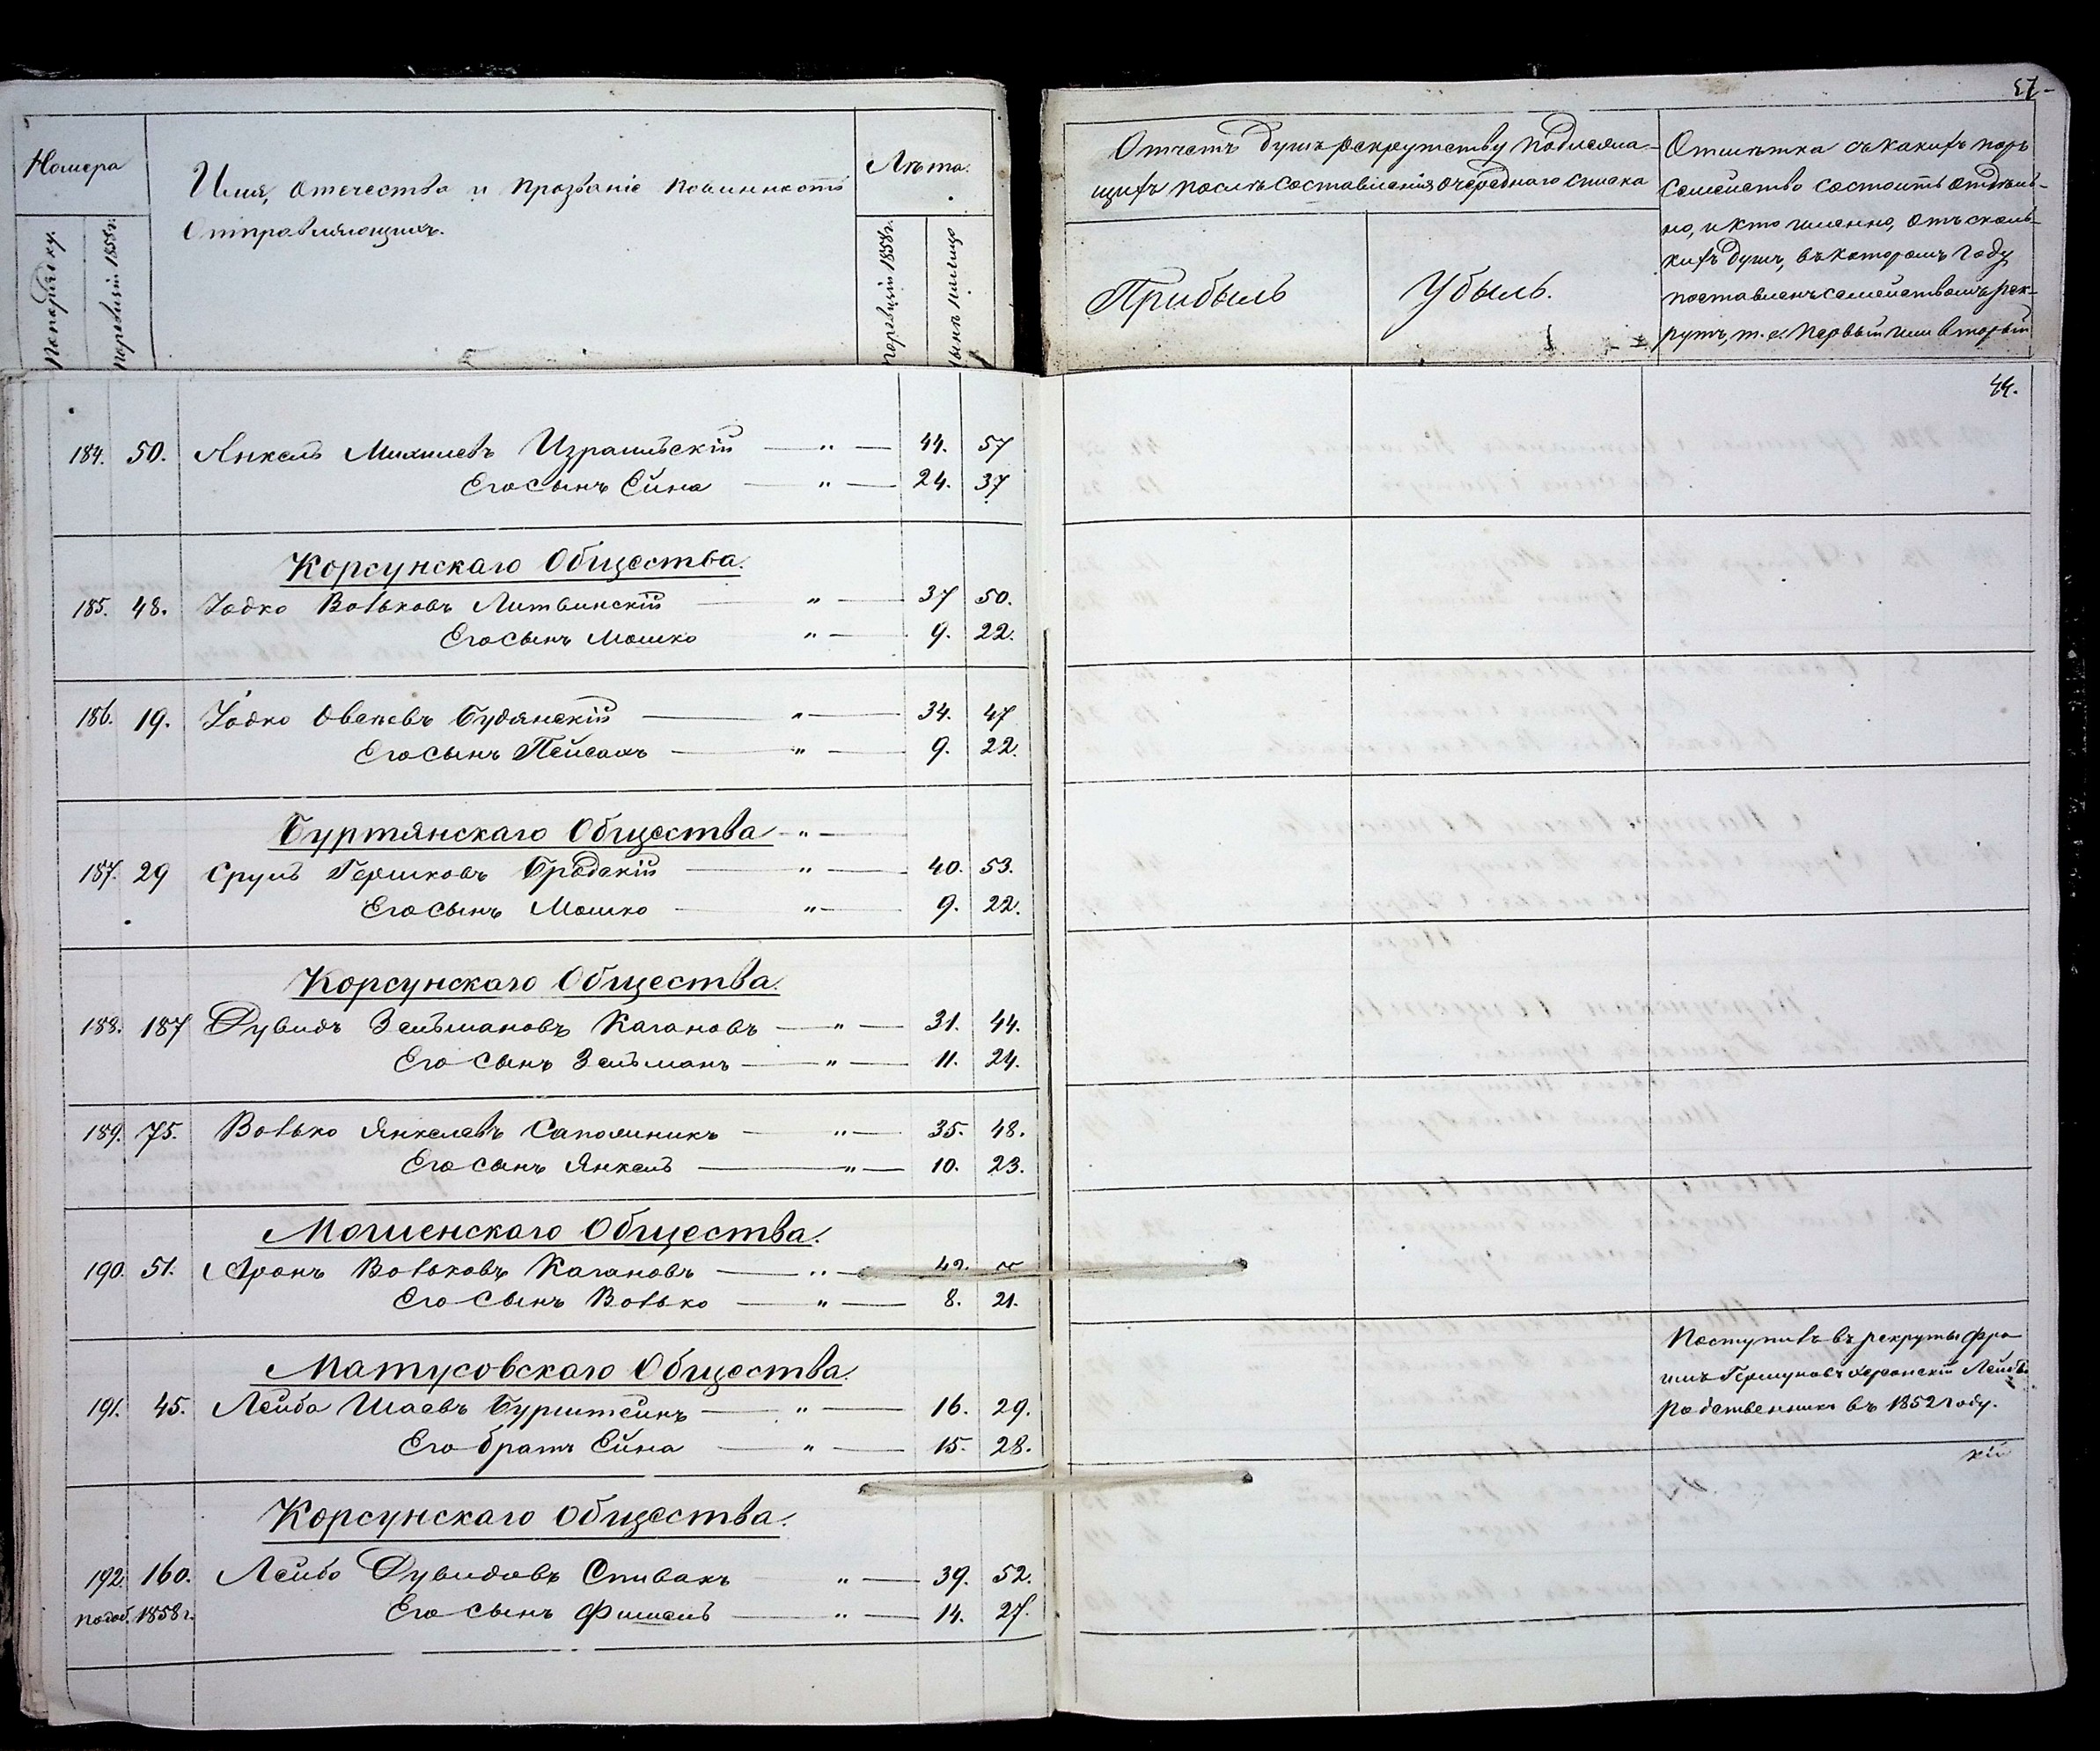 57
Номера
Имя, отечество и прозваніе повинность
Отправляющихъ.
Лѣта.
По порядку.
по ревизіи 1858 г.
по ревизіи 1858 г.
нынѣ
Отчетъ душъ рекрутству подлежа-
щихъ послѣ составленія очереднаго списка
Прибыль
Убыль.
Отмѣтка съ какихъ поръ
семейство состоитъ отдѣль-
но, и кто именно, отъ сколь-
кихъ душъ, въ которомъ году
поставленъ семействомъ рек-
рутъ, т. е. первый или вторый
44.
184. 50. Янкель Михилевъ Израильскій — " — 44. 57
Его сынъ Ейна — " — 24. 37
Корсунскаго Общества.
185. 48. Іодко Вольковъ Литвинскій — " — 37 50.
Его сынъ Мошко " — 9. 22.
186. 19. Іодко Овсеевъ Будянскій — " — 34. 47
Его сынъ Пейсахъ — " — 9. 22.
Буртянскаго Общества — " —
187. 29 Сруль Гершковъ Бродскій — " — 40. 53.
Его сынъ Мошко — " — 9. 22.
Корсунскаго Общества.
188. 187 Дувидъ Зельмановъ Кагановъ — " — 31. 44.
Его сынъ Зельманъ — " — 11. 24.
189. 75. Волько Янкелевъ Сапожникъ — " — 35. 48.
Его сынъ Янкель — " — 10. 23.
Мошенскаго Общества.
190. 51. Аронъ Вольковъ Кагановъ — " — 42.
Его сынъ Волько — " — 8. 21.
Матусовскаго Общества.
191. 45. Лейба Шаевъ Бурштейнъ — " — 16. 29.
Его братъ Ейна — " — 15. 28.
Поступилъ въ рекруты Фро-
имъ Гершуновъ Херсонскій Лейбѣ
родственникъ въ 1852 году.
кій
Корсунскаго Общества.
192. 160. Лейба Дувидовъ Спивакъ " — 39. 52.
1858 г. Его сынъ Фишель — " — 14. 27.